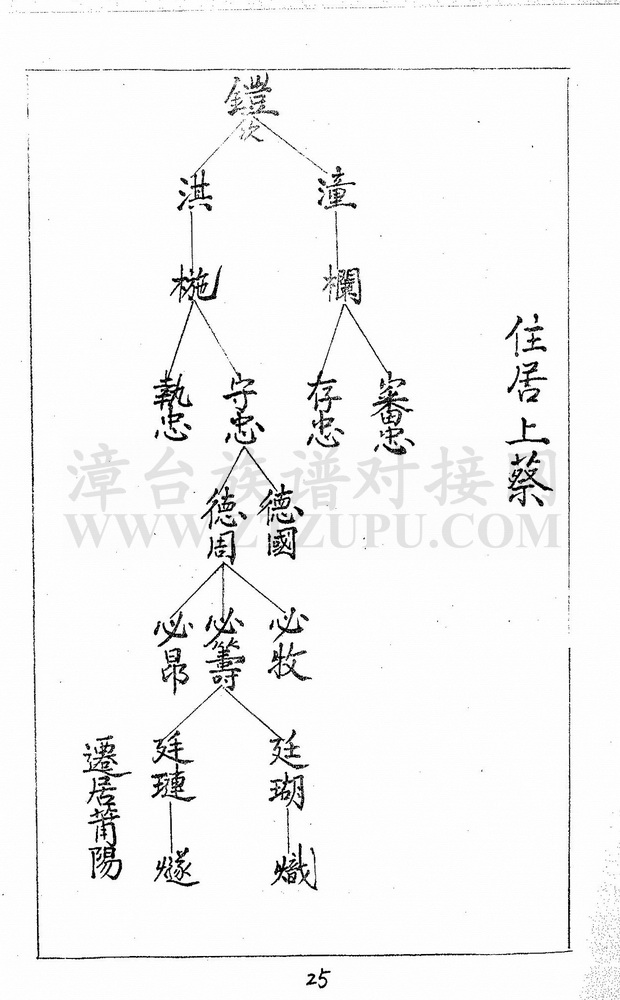 鎧
次
淇 潼
椸 欄
執忠 守忠 存忠 審忠
住居上蔡
德周 德國
必昂 必籌 必牧
廷璉 廷瑚
遷居莆陽
燧 熾
漳台族谱对接网
WWW.ZTZUPU.COM
25